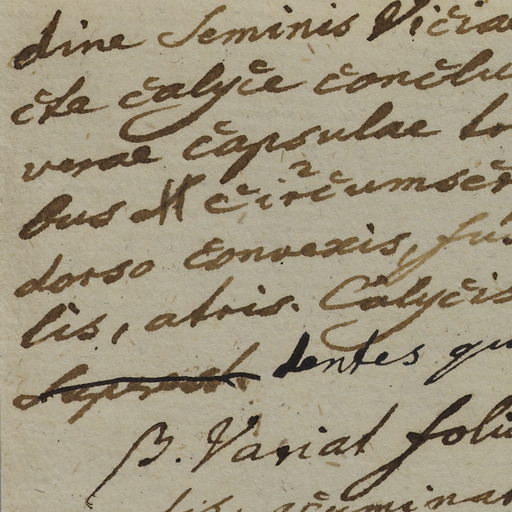 dine Seminis Vicia
cte calyce conclu
verae capsulae to
bus circumscr
dorso convexis, fus
lis, atris. Calycis
dentes qu
β. Variat foli
acuminat